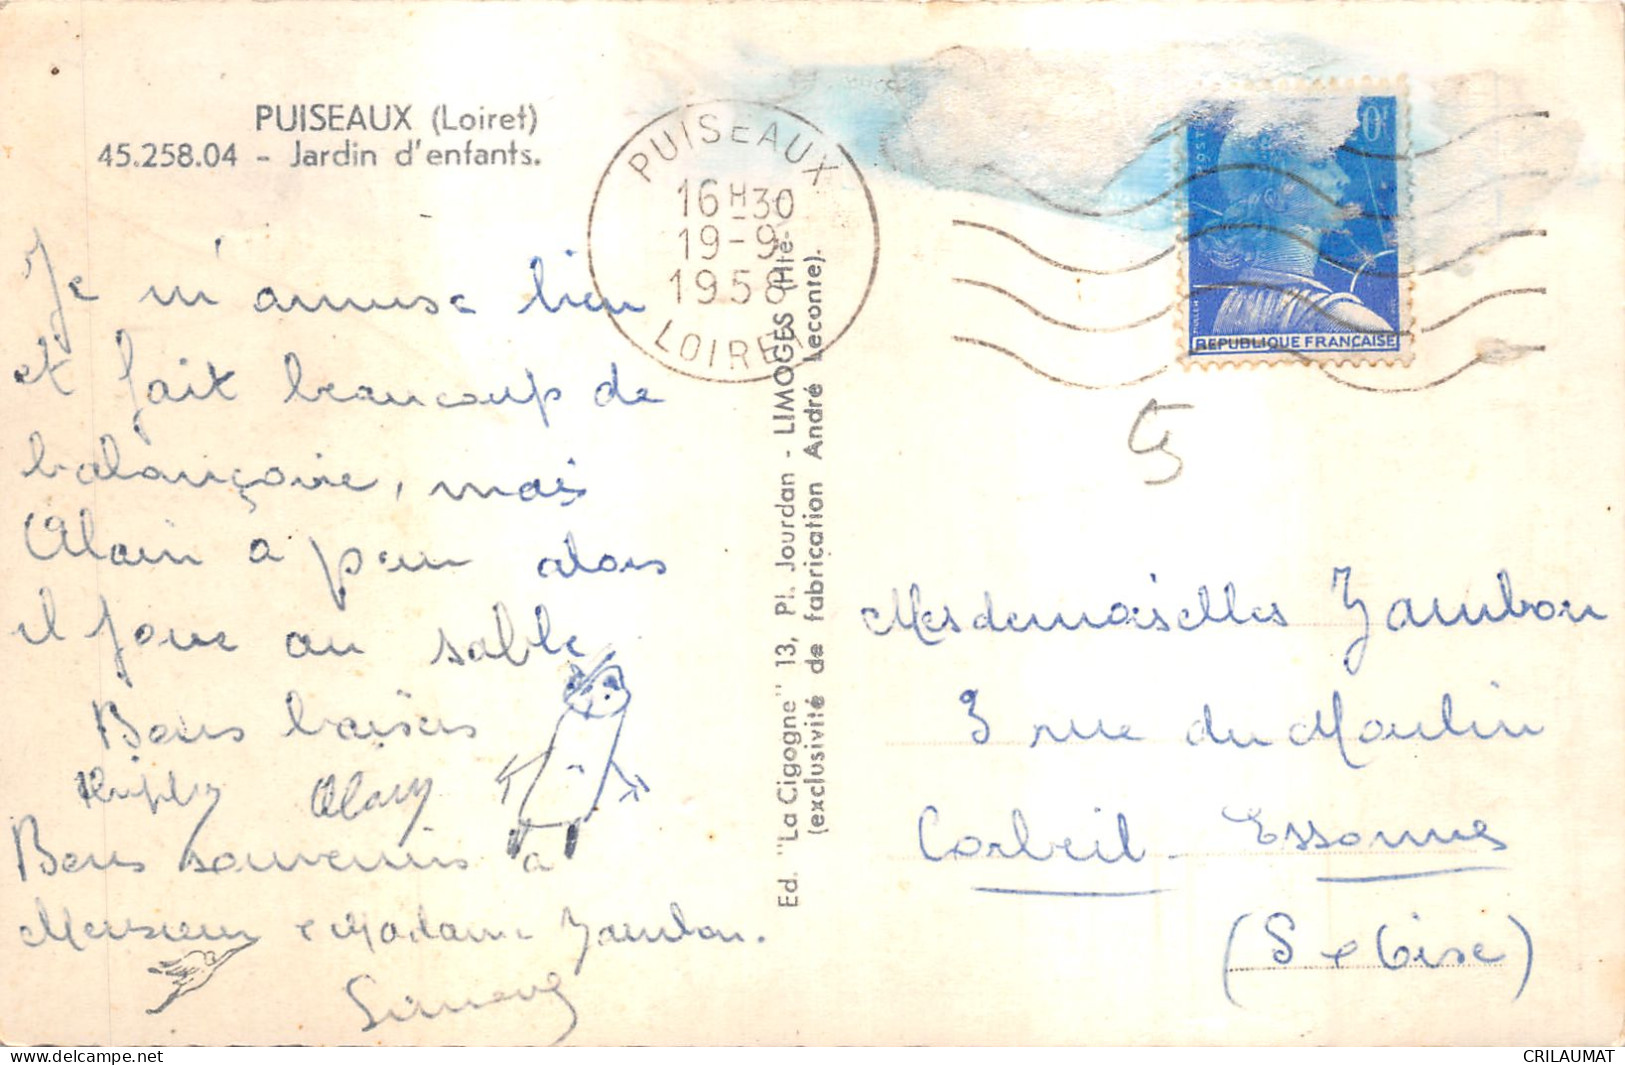 PUISEAUX (Loiret)
45.258.04 - Jardin d'enfants.
Je m'amuse bien
et fait beaucoup de
balançoire, mais
Alain a peur alors
il joue au sable
Bons baisers
Bons souvenirs à
Monsieur & Madame Zambon.
Ed. "La Cigogne" 13, Pl. Jourdan - LIMOGES (Hte-
(exclusivité de fabrication André Leconte).
PUISEAUX
16H30
19-9
1958
LOIRET
0F
REPUBLIQUE FRANÇAISE
MULLER
Mesdemoiselles Zambon
3 rue du Moulin
Corbeil-Essonnes
(S & Oise)
CRILAUMAT